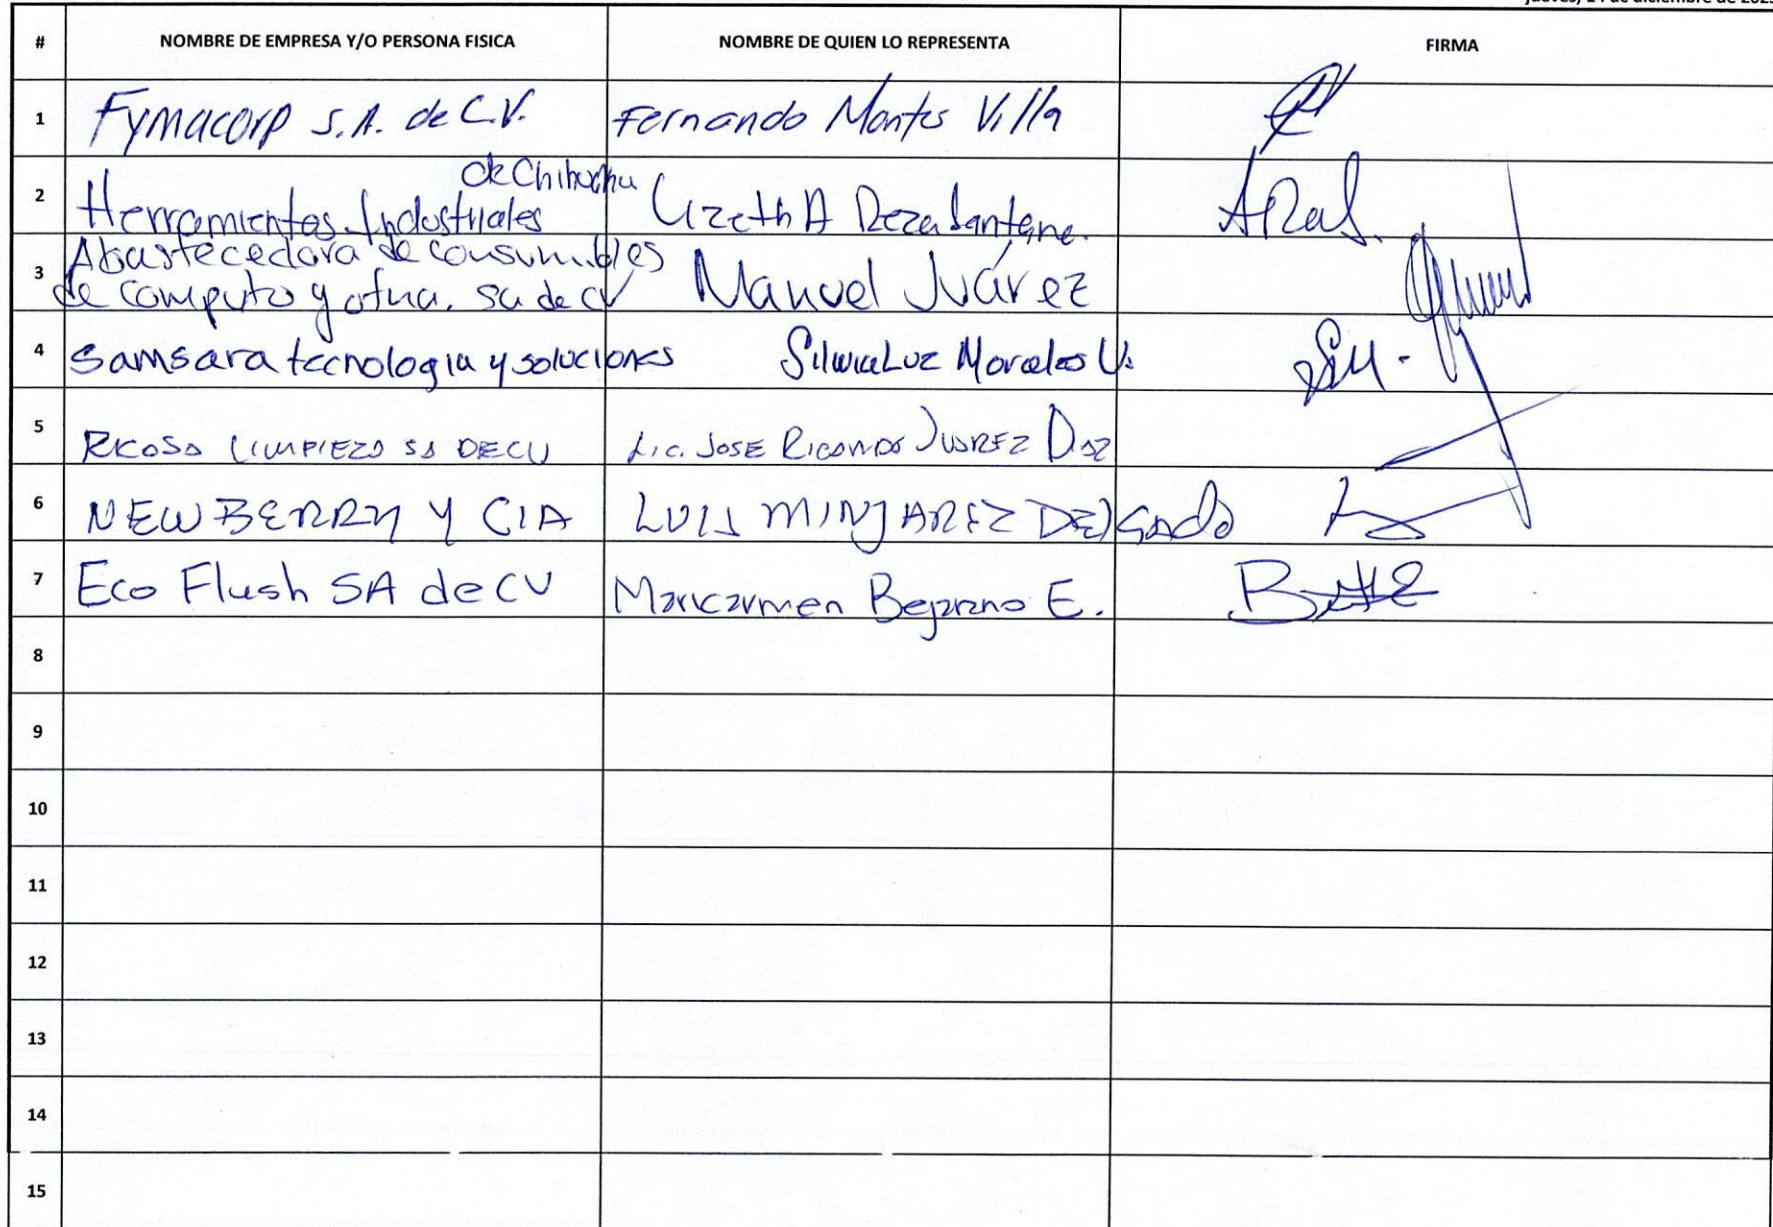 jueves, 14 de diciembre de 2023
# NOMBRE DE EMPRESA Y/O PERSONA FISICA NOMBRE DE QUIEN LO REPRESENTA FIRMA
1 Fymacorp S.A. de C.V. Fernando Montes Villa
de Chihuahu
2 Herramientas Industriales Lizeth A
Abastecedora de consumibles
3 de computo y ofna. sa de cv Manuel Juárez
4 Samsara tecnologia y soluciones Silvia Luz Morales V.
5 RICOSA LIMPIEZA SA DE CV Lic. JOSE RICARDO JUAREZ DIAZ
6 NEWBERRY Y CIA LUIS MINJAREZ DELGADO
7 Eco Flush SA de CV Maricarmen Bejarano E.
8
9
10
11
12
13
14
15